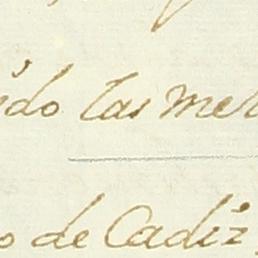 ido las mer
o de Cadiz